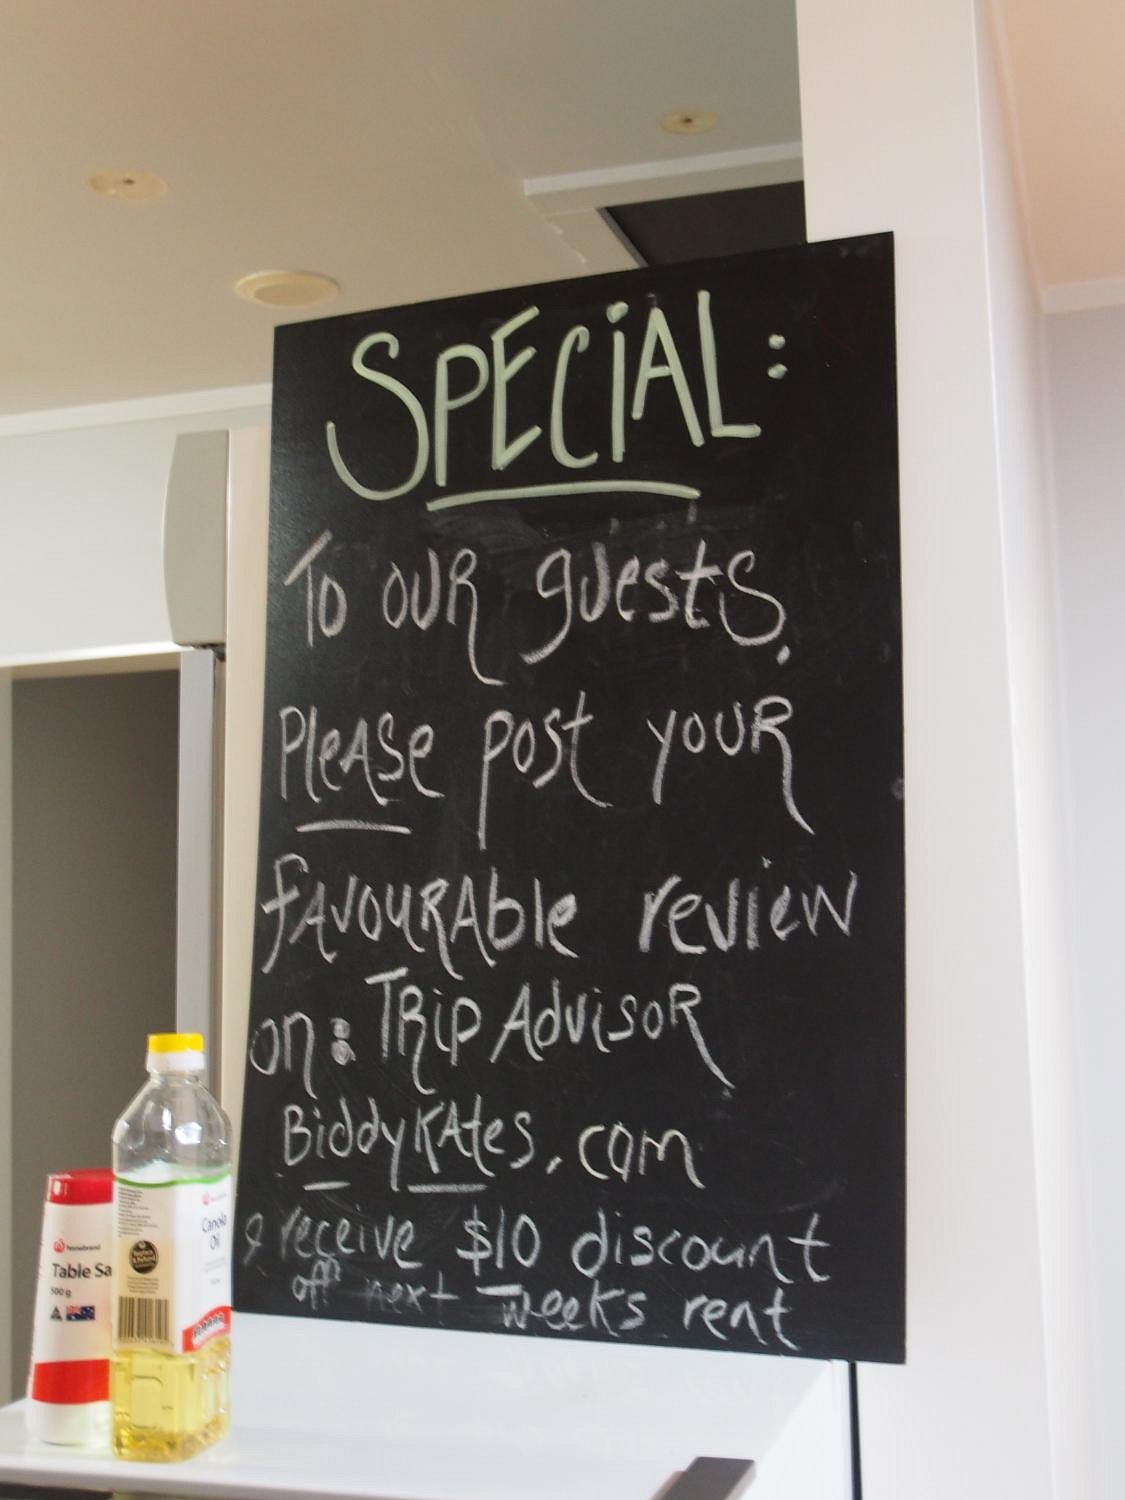 SPECiAL:
To OUR guests,
PleASe post yOUR
fAVOURAble review
on: TRip AdvisoR
BiddyKAtes.com
& receive $10 discount
off next weeks rent
homebrand
Table Sa
500 g
Canola
Oil